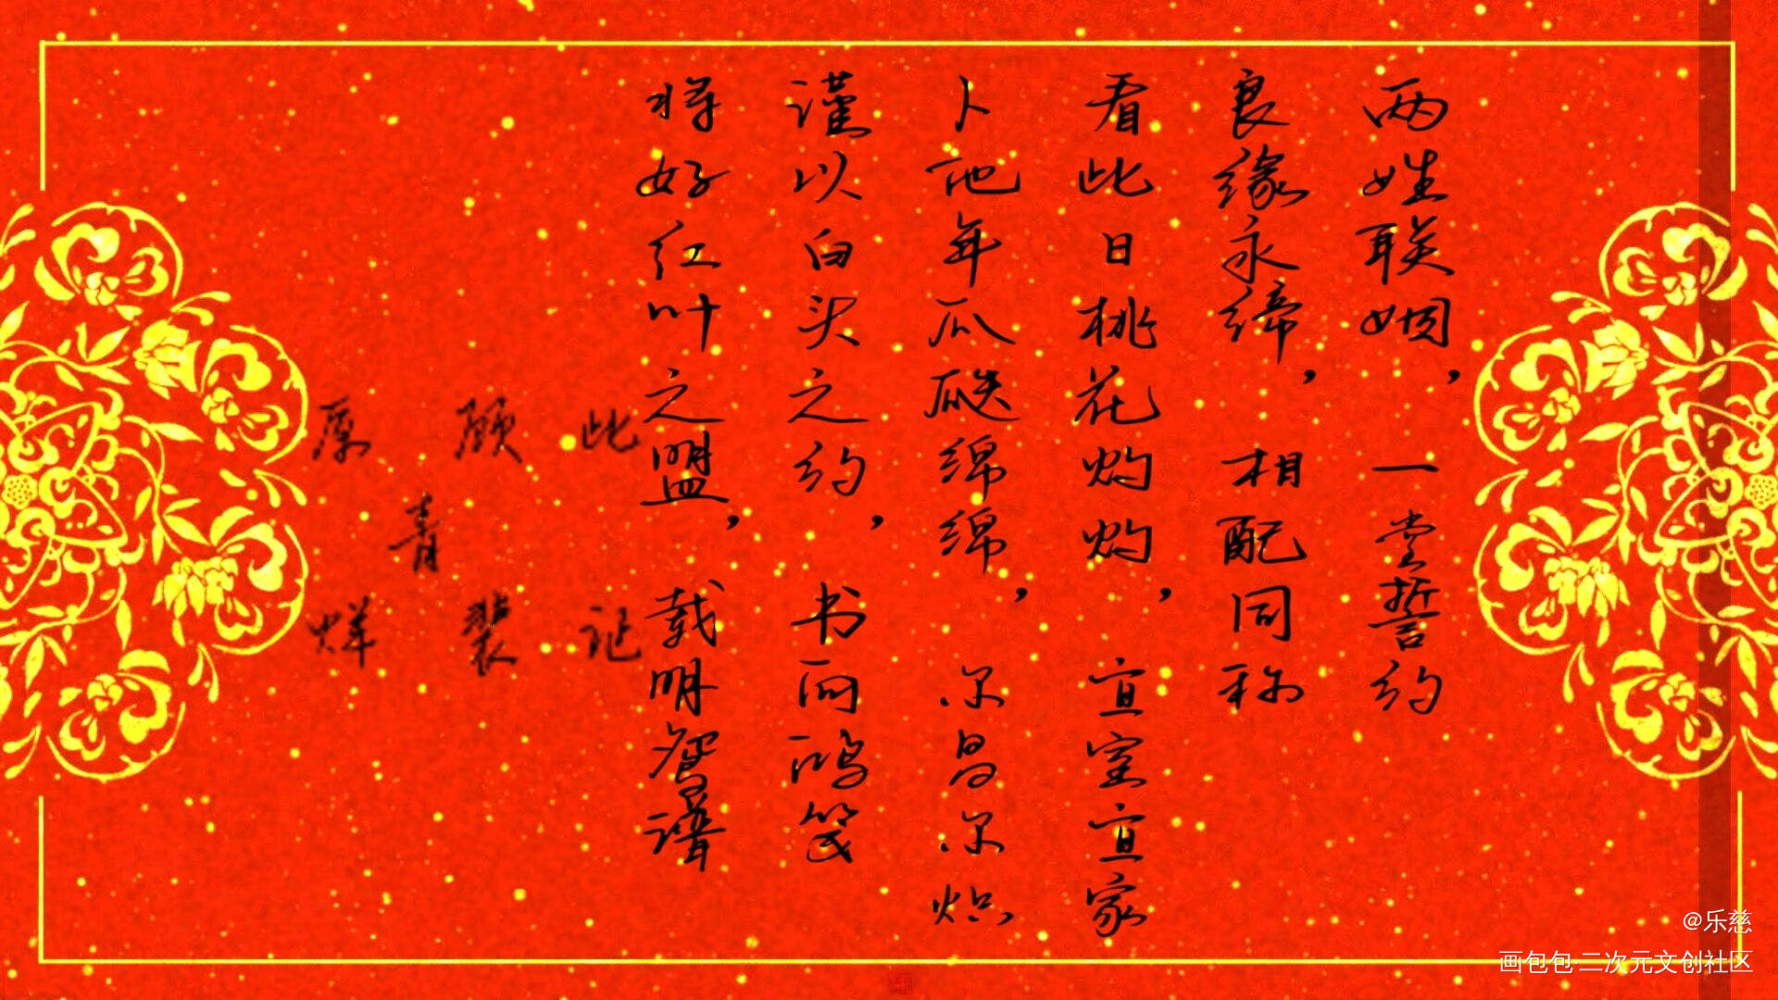 两姓联姻，一堂誓约
良缘永缔，相配同称
看此日桃花灼灼，宜室宜家
卜他年瓜瓞绵绵，尔昌尔炽
谨以白头之约，书向鸿笺
将好红叶之盟，载明鸳谱
此记
顾裴
青烊
@乐慈
画包包·二次元文创社区